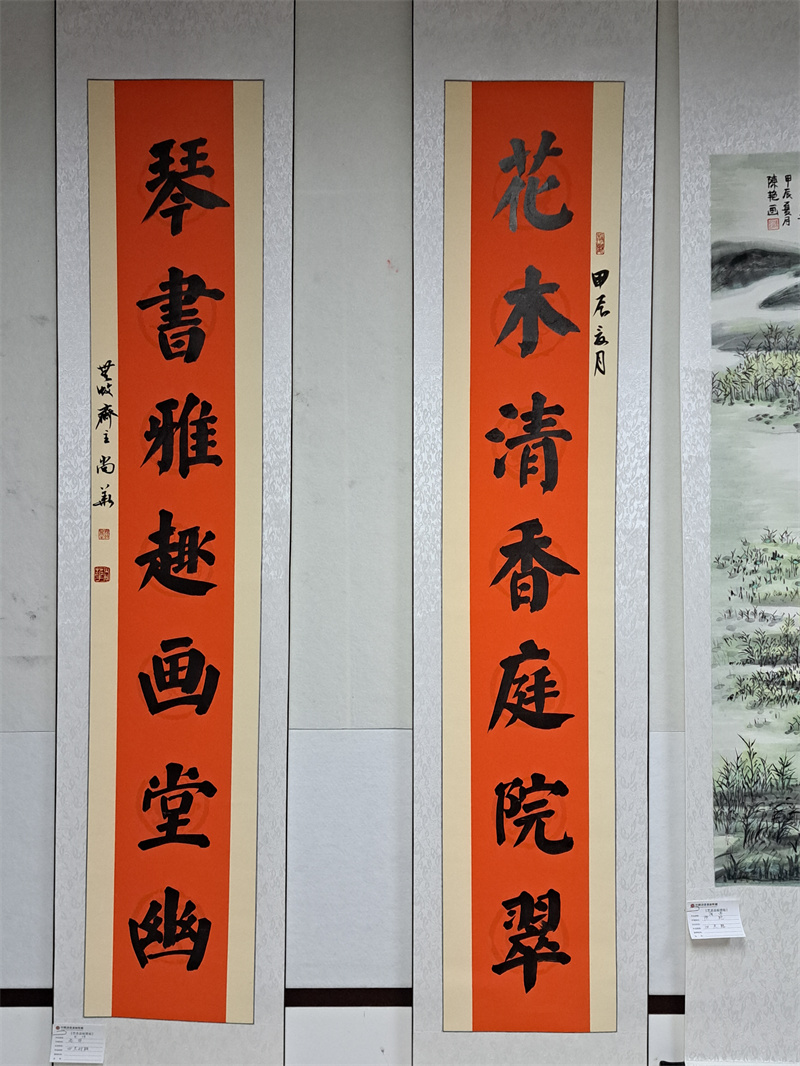 花木清香庭院翠
甲辰亥月
琴書雅趣画堂幽
齋主尚華
甲辰夏月
陳艳画